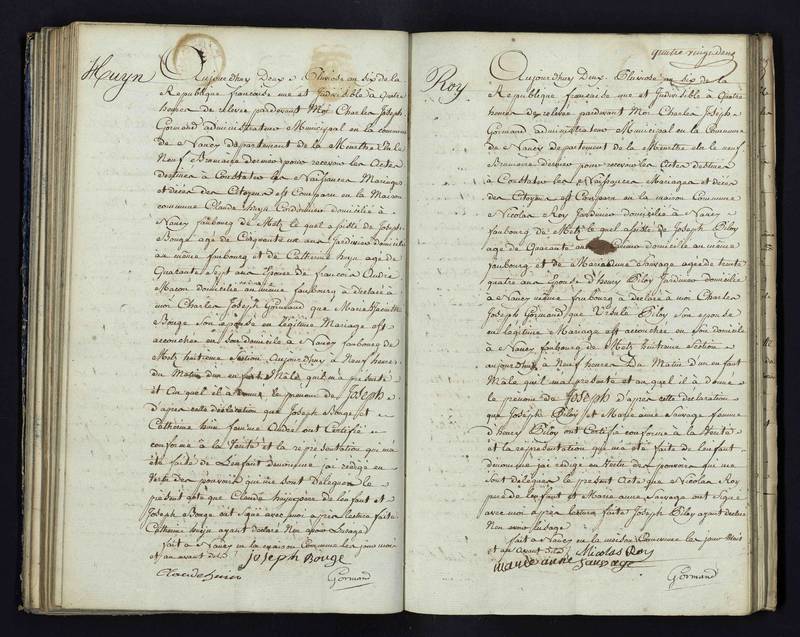 Huyn
Aujourdhuy Deux Pluviose an six de la
Republique francaise une et Indivisible à Quatre
heures de relevée pardevant Moi Charles Joseph
Gormand administrateur Municipal en la commune
de Nancy département de la Meurthe Elu le
Neuf Brumaire dernier pour recevoir les Actes
destinés à Constater les Naissances Mariages
et décès des Citoyens est Comparu en la Maison
commune Claude huyn Cordonnier domicilié à
Nancy faubourg de Metz le quel assisté de Joseph
Bouge agé de Cinquante un ans Jardinier domicilié
au même faubourg et de Catherine huyn agée de
Quarante Sept ans Epouse de francois
Macon domicilié au même faubourg à déclaré à
moi Charles Joseph Gormand que Marie
Bouge Son épouse en légitime Mariage est
accouchée en son domicile à Nancy faubourg de
Metz huitieme Section Aujourdhuy à Neuf heures
du Matin d'un enfant Mâle qu'il m'a présenté
et Au quel il à donné le prenom de Joseph
d'apres cette déclaration que Joseph Bouge et
Catherine huin femme ont Certifié
conforme à la Verité et la représentation qui m'a
été faite de L'enfant denommé j'ai rédigé en
Vertu des pouvoirs qui me sont Délégués le
présent acte que Claude huyn pere de l'enfant et
Joseph Bouge ont signé avec moi après lecture faite
Catherine huyn ayant déclaré Non avoir L'usage
fait à Nancy en la maison Commune les jour mois
et an avant dits Joseph Bouge
Gormand
quatre vingt deux
Roy
Aujourdhuy Deux Pluviose an six de la
Republique francaise une et Indivisible à Quatre
heures de relevée pardevant Moi Charles Joseph
Gormand administrateur Municipal en la Commune
de Nancy département de la Meurthe élu le neuf
Brumaire dernier pour recevoir les Actes destinés
à Constater les Naissances Mariages et décès
des Citoyens est Comparu en la maison Commune
Nicolas Roy Jardinier domicilié à Nancy
faubourg de Metz le quel assisté de Joseph Piloy
agé de Quarante ans domicilié au même
faubourg et de Marie anne Sauvage agée de trente
quatre ans Epouse d'henry Piloy Jardinier domicilié
à Nancy même faubourg à déclaré à moi Charles
Joseph Gormand que Ursule Piloy Son epouse
en légitime Mariage est accouchée en son domicile
à Nancy faubourg de Metz huitieme Section
aujourdhuy à Neuf heures Du Matin d'un enfant
Mâle qu'il m'a présenté et au quel il à donné
le prenom de Joseph d'après cette declaration
que Joseph Piloy et Marie anne Sauvage femme
d'henry Piloy ont Certifié conforme à la Verité
et la représentation qui m'a été faite de l'enfant
denommé j'ai rédigé en Vertu des pouvoirs qui me
sont délégués le présent Acte que Nicolas Roy
pere de l'enfant et Marie anne Sauvage ont signé
avec moi après lecture faite Joseph Piloy ayant déclaré
Non avoir l'usage
fait à Nancy en la maison Commune les jour Mois
et an avant dits Nicolas Roy
marie anne Sauvage
Gormand